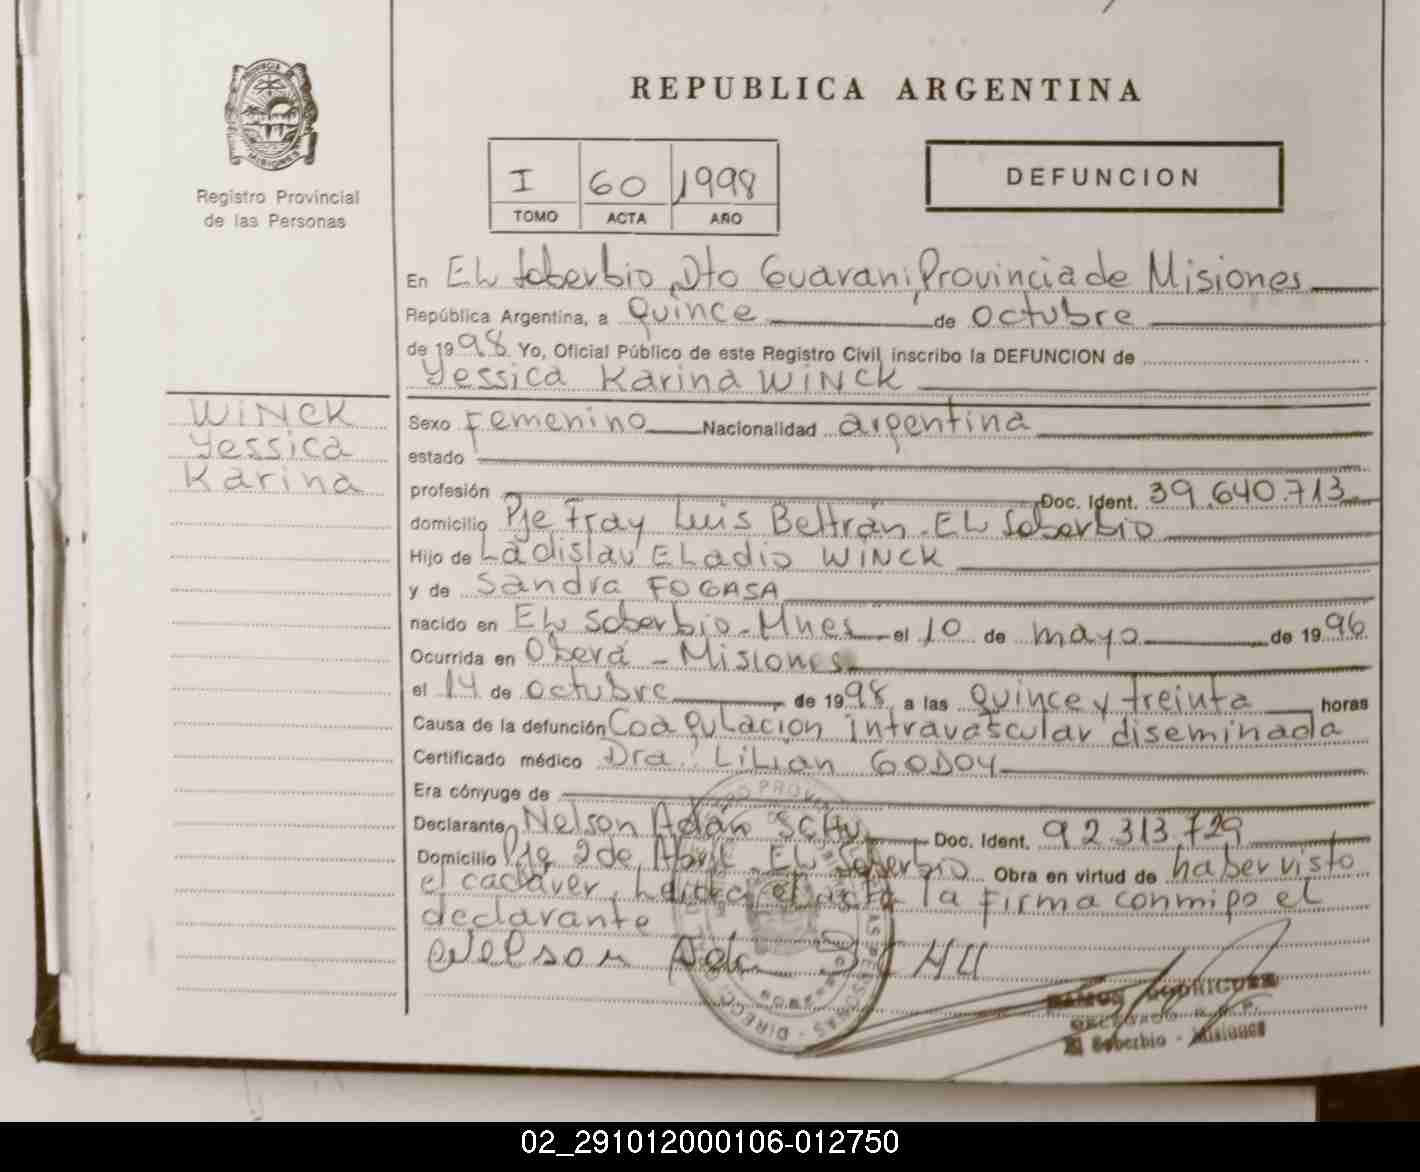 REPUBLICA ARGENTINA
PROVINCIA DE
MISIONES
Registro Provincial
de las Personas
I 60 1998
TOMO ACTA AÑO
DEFUNCION
En EL Soberbio, Dto Guarani, Provincia de Misiones
República Argentina, a quince de octubre
de 1998. Yo, Oficial Público de este Registro Civil, inscribo la DEFUNCION de
Yessica Karina WINCK
WINCK
Yessica
Karina
Sexo Femenino Nacionalidad argentina
estado
profesión Doc. Ident. 39.640.713
domicilio Pje Fray Luis Beltrán. EL Soberbio
Hijo de Ladislau ELadio WINCK
y de Sandra FOGASA
nacido en EL Soberbio - Mnes el 10 de mayo de 1996
Ocurrida en Oberá - Misiones
el 14 de octubre de 1998 a las quince y treinta horas
Causa de la defunción Coagulacion intravascular diseminada
Certificado médico Dra. LiLian GODOY
Era cónyuge de
Declarante Nelson Adán SCHU Doc. Ident. 92.313.729
Domicilio Pje 2 de Abril. EL Soberbio Obra en virtud de haber visto
el cadáver, Leída el acta la firma conmigo el
declarante
Nelson Adan SCHU
RAMON RODRIGUEZ
DELEGADO R.P.P.
El Soberbio - Misiones
02_291012000106-012750